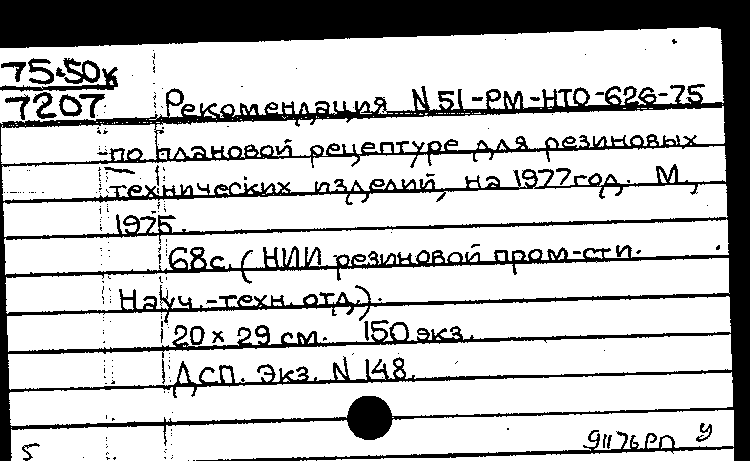 75-50к
7207
Рекомендация N 51-РМ-НТО-626-75
по плановой рецептуре для резиновых
технических изделий, на 1977 год. М.,
1975.
68с. (НИИ резиновой пром-сти.
Науч.-техн. отд.).
20 х 29 см. 150 экз.
ДСП. Экз. N 148.
5 91176РП У